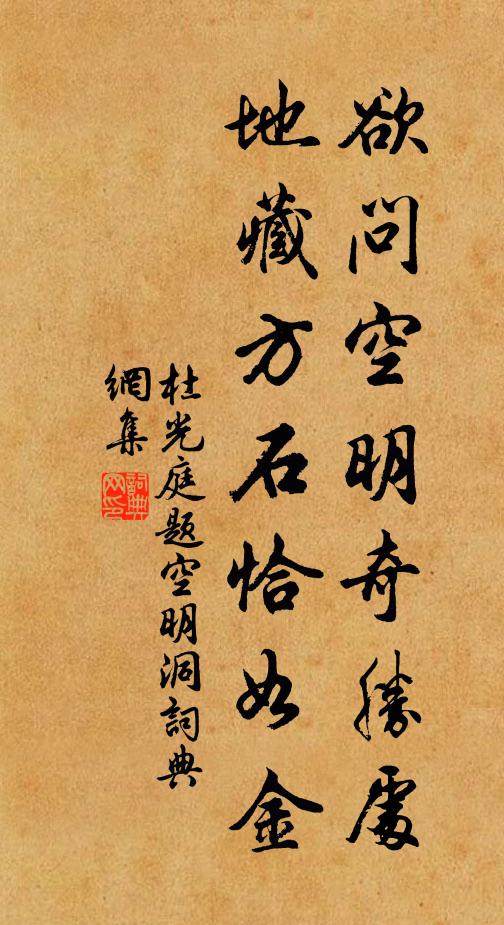 欲问空明奇勝處
地藏方石恰如金
杜光庭题空明洞詞典
網集
詞典
网印